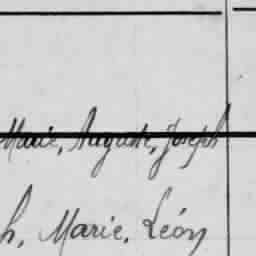 Marie, Auguste, Joseph
h, Marie, Léon